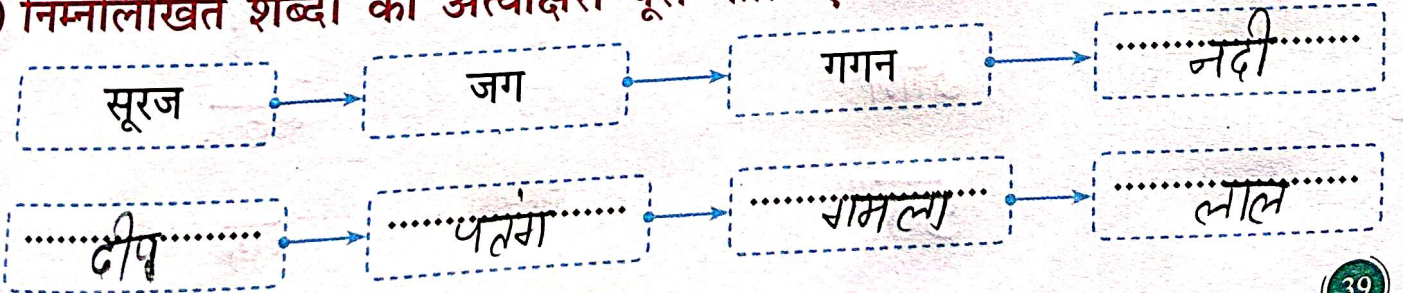 निम्नलिखित शब्दों की अंत्याक्षरी
सूरज जग गगन नदी
दीप पतंग गमला लाल
39